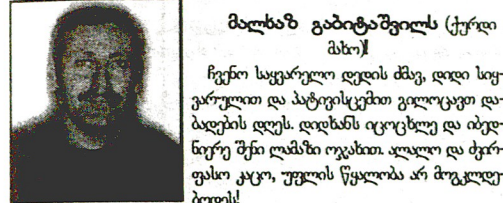 მალხაზ გაბიტაშვილს (ქურდი
მახო)!
ჩვენო საყვარელო დედის ძმავ, დიდი სიყ-
ვარულით და პატივისცემით გილოცავთ და-
ბადების დღეს. დიდხანს იცოცხლე და იბედ-
ნიერე შენი ლამაზი ოჯახით. ალალო და ძვირ-
ფასო კაცო, უფლის წყალობა არ მოგკლდე-
ბოდის!